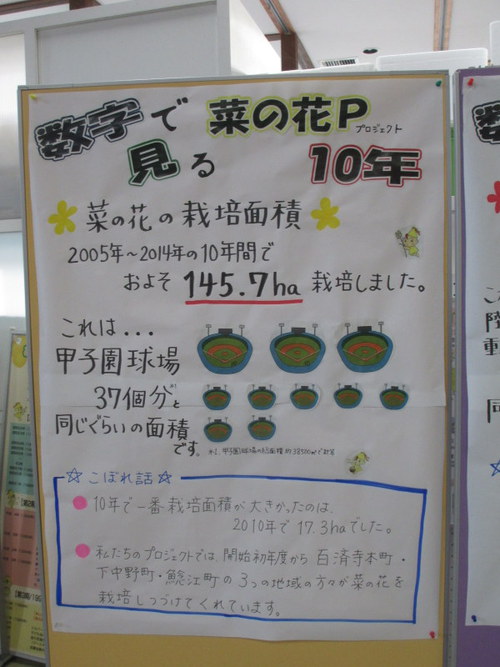 数字で 菜の花P
プロジェクト
見る 10年
菜の花の栽培面積
2005年～2014年の10年間で
およそ 145.7ha 栽培しました。
これは...
甲子園球場
37個分と
同じぐらいの面積
です。
☆こぼれ話☆
10年で一番栽培面積が大きかったのは、
2010年で17.3haでした。
私たちのプロジェクトでは、開始初年度から百済寺本町・
下中野町・鯰江町の3つの地域の方々が菜の花を
栽培しつづけてくれています。